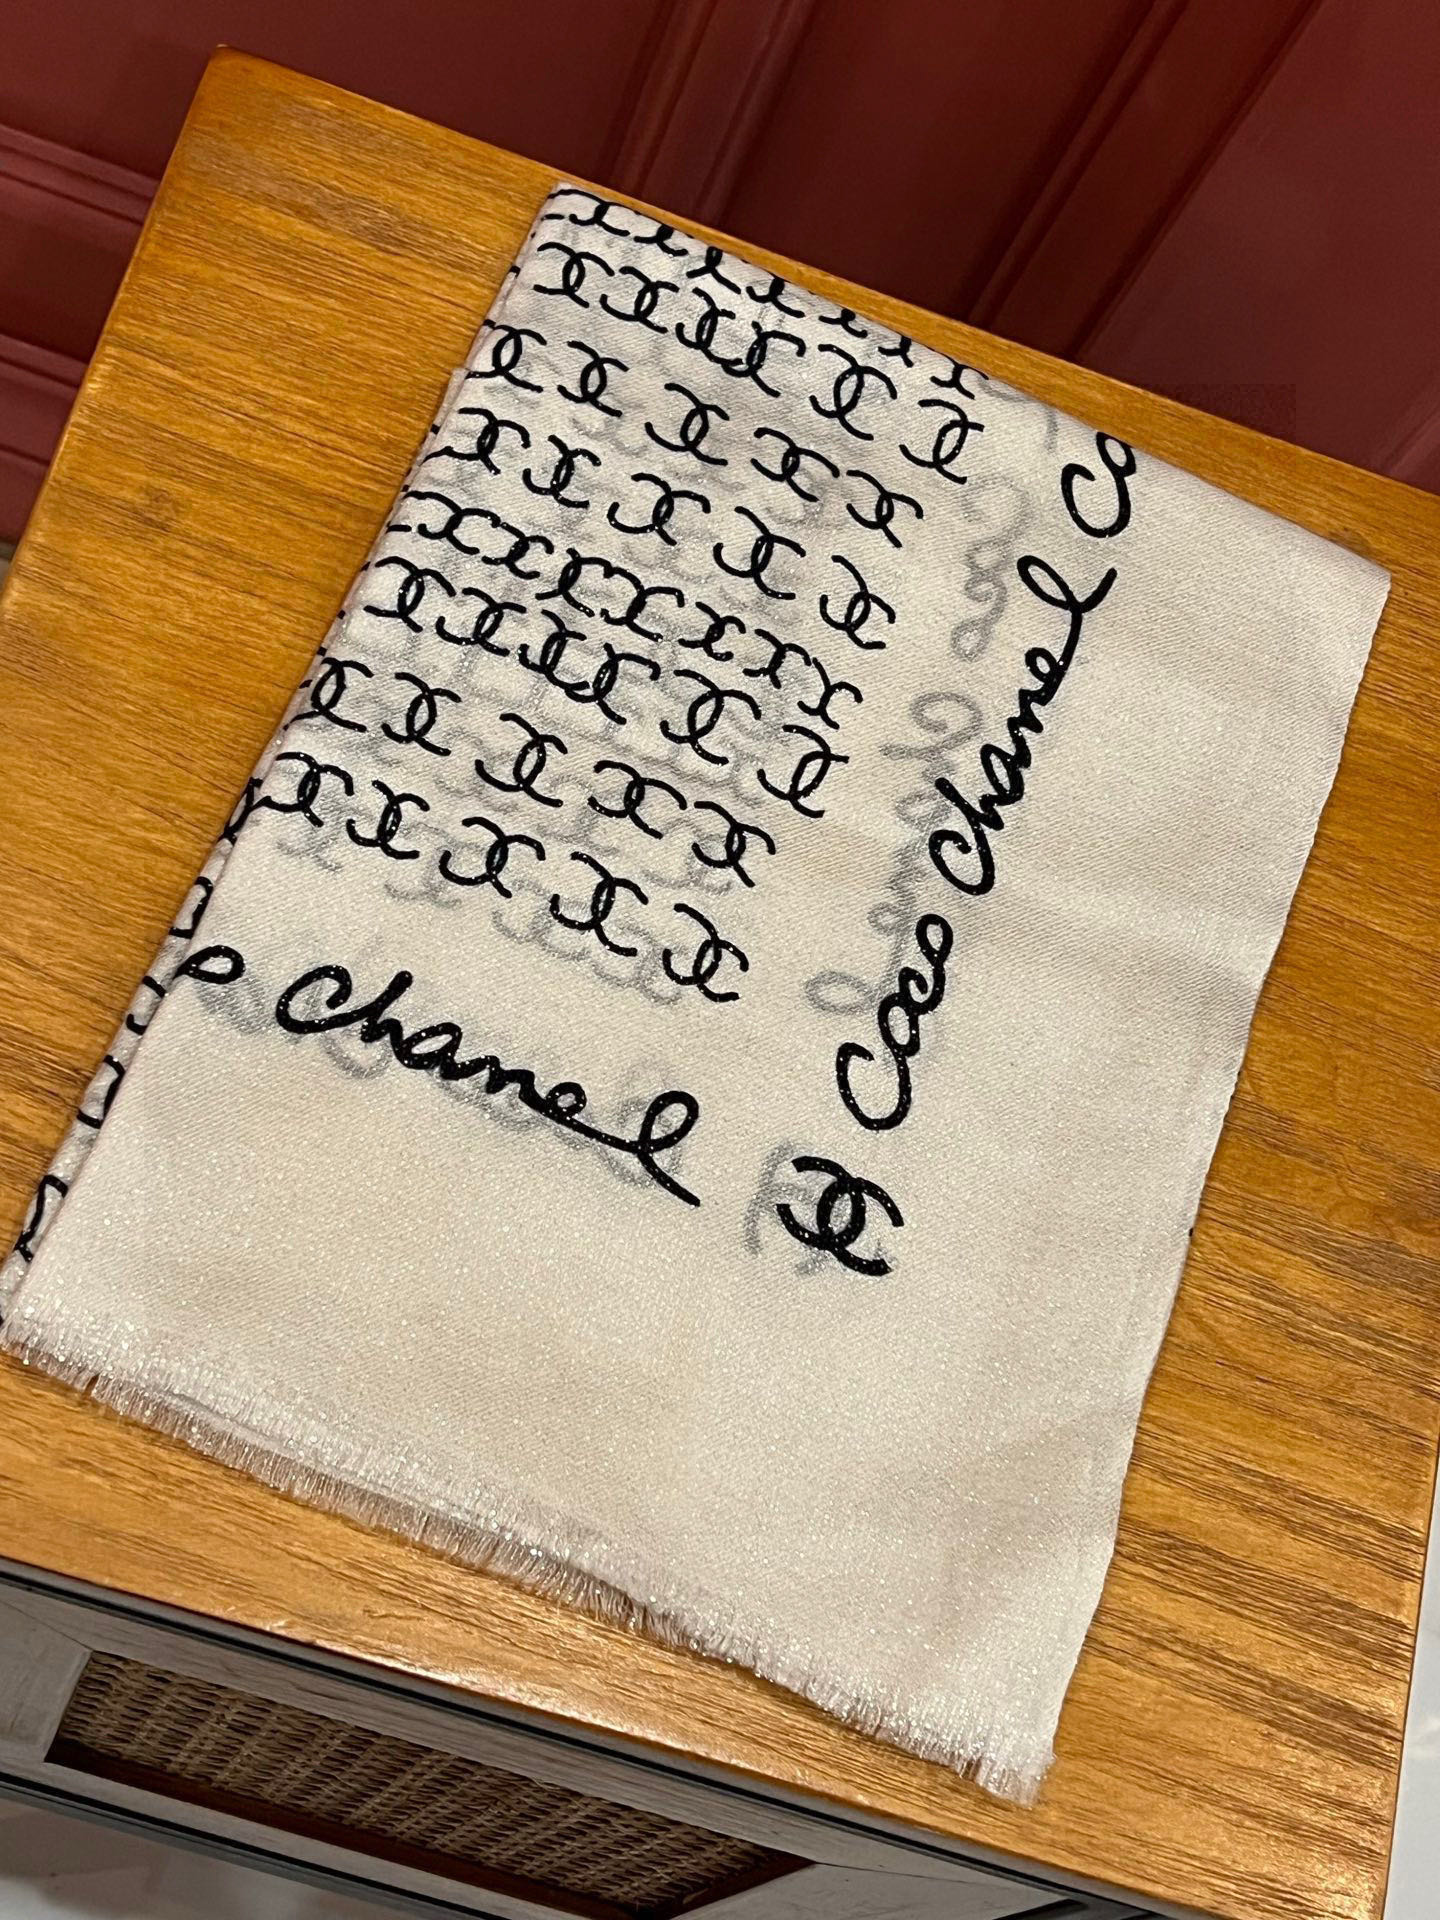 Co
coco chanel
o chanel